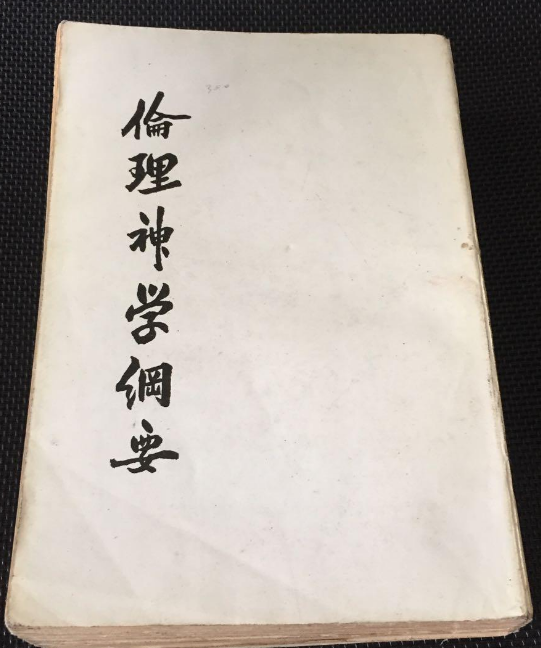 倫理神学綱要